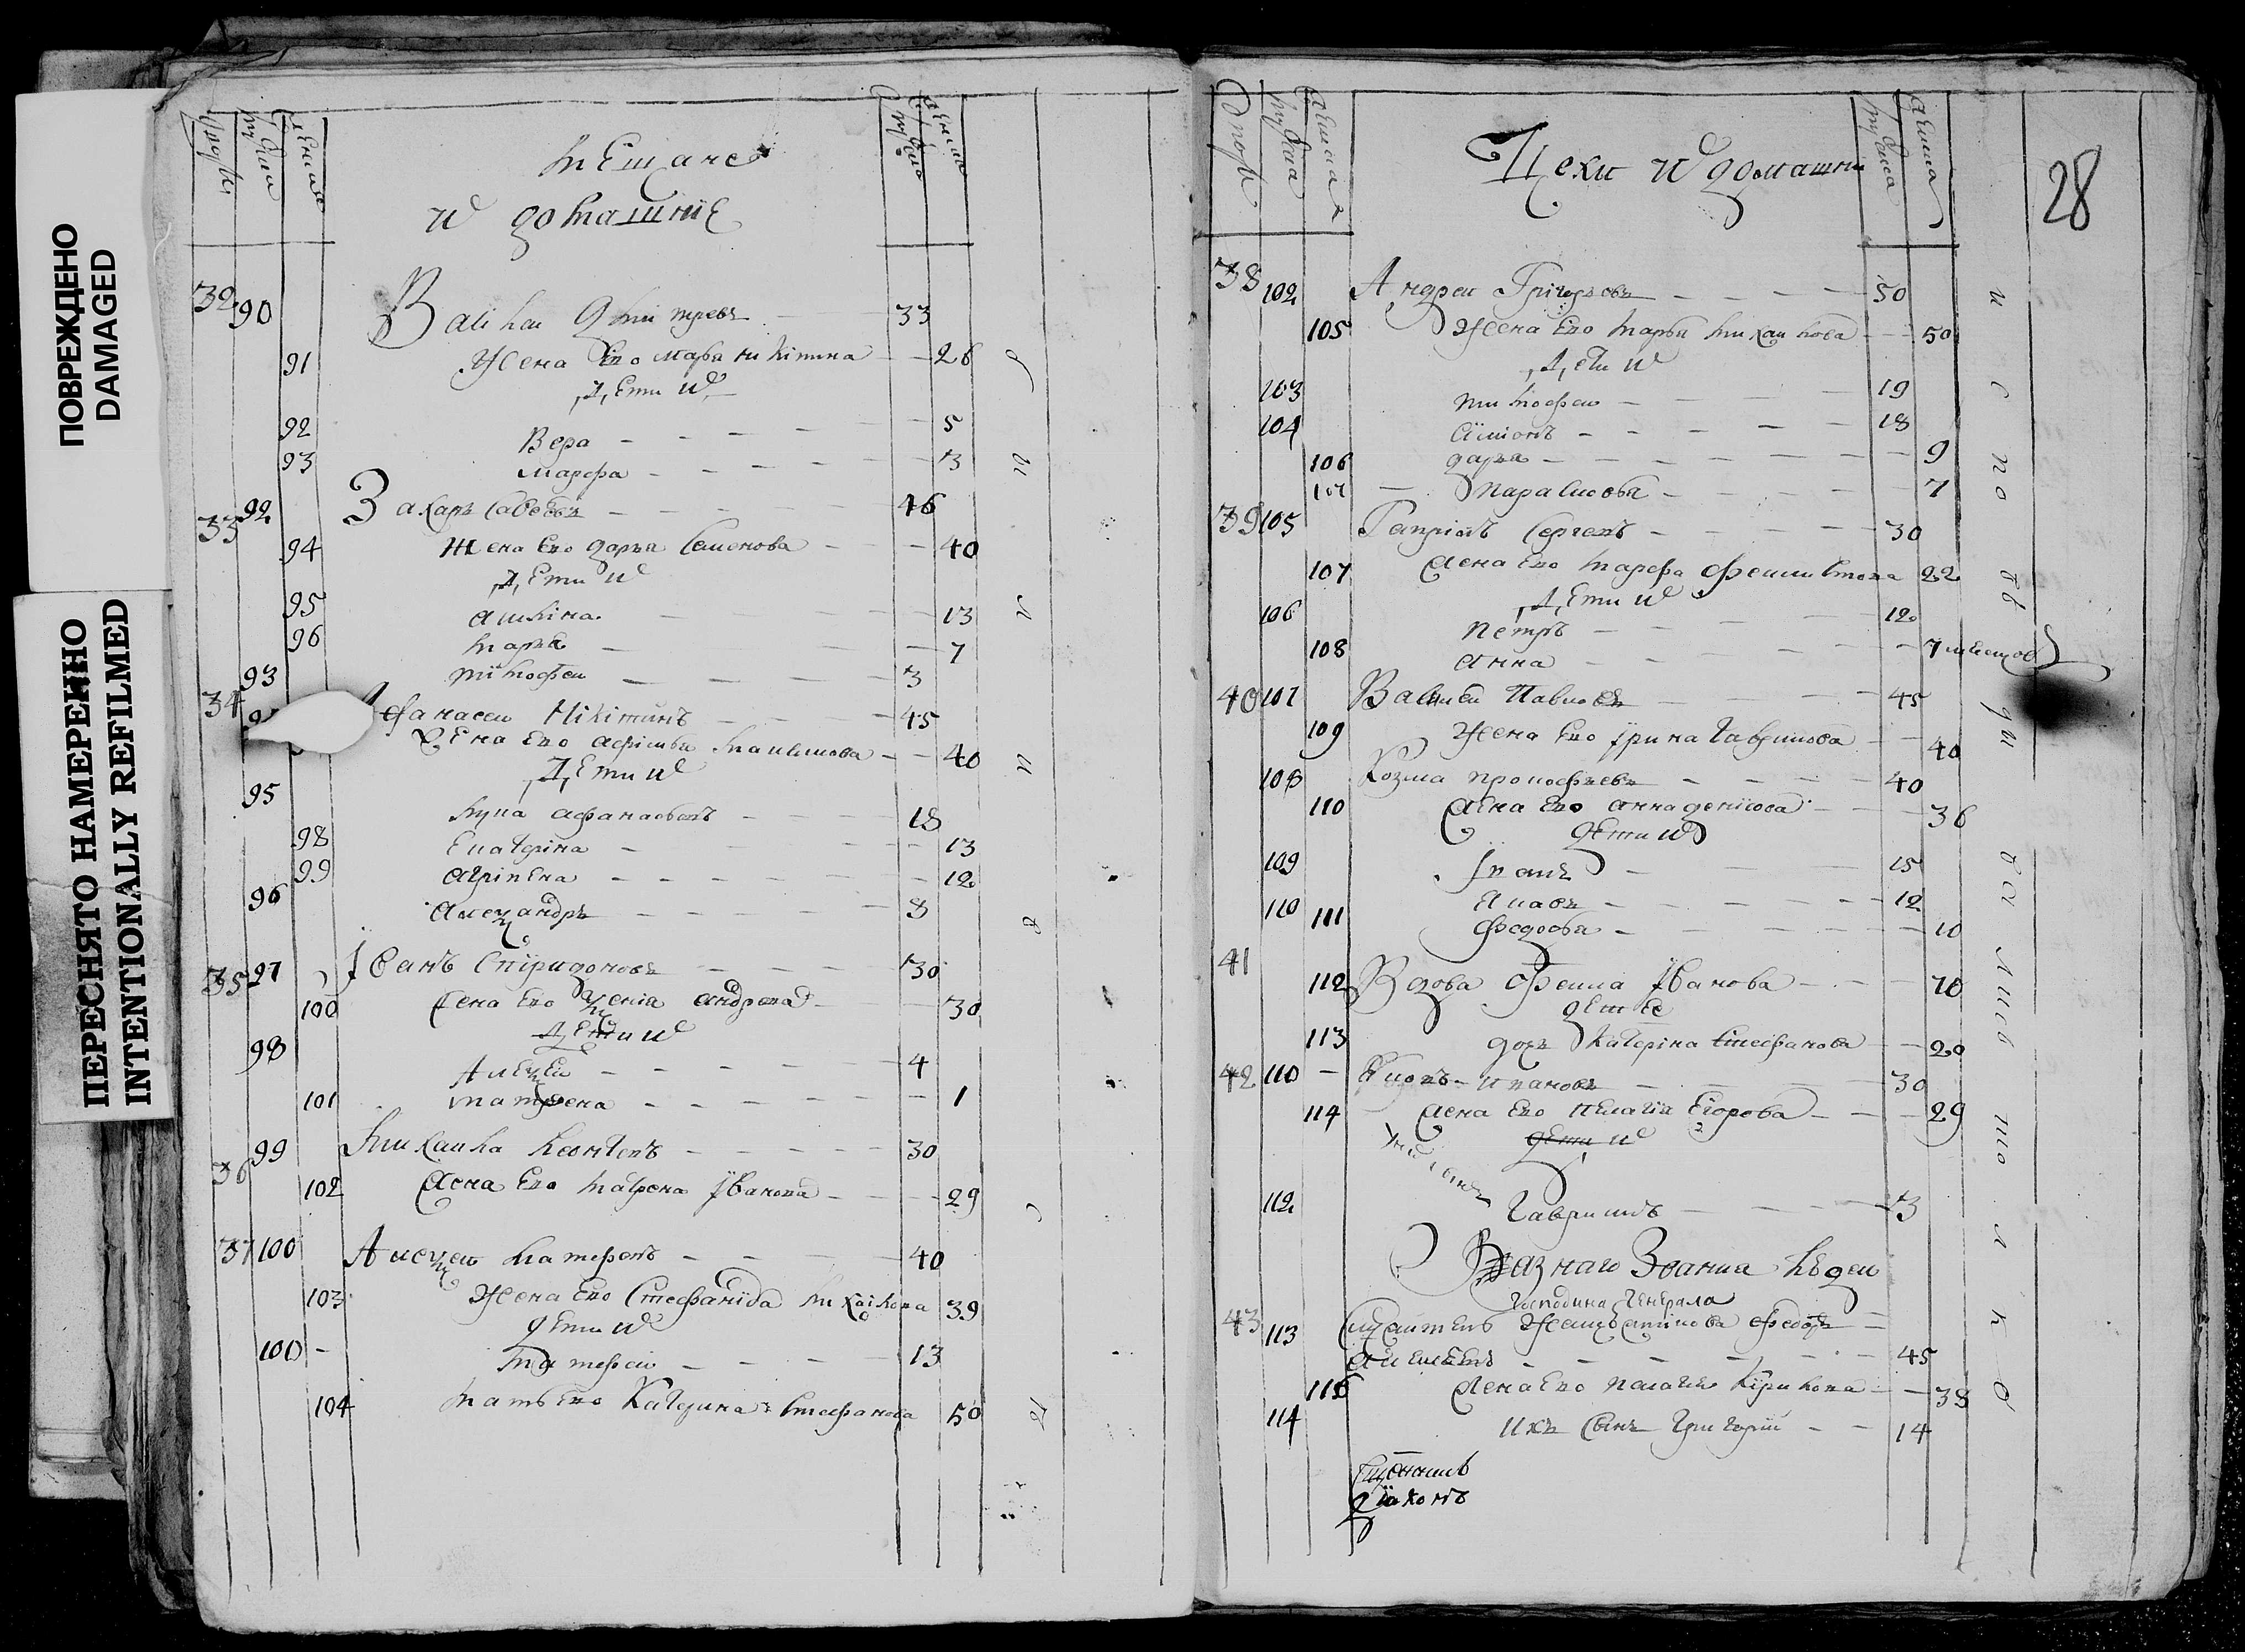 ПОВРЕЖДЕНО
DAMAGED
ПЕРЕСНЯТО НАМЕРЕННО
INTENTIONALLY REFILMED
мещане
и домашние
32 90 Василеи Дмитревъ 33
91 Жена Ево Мавра Никитина 26
Дети их
92 Вера 5
93 марфа 3
33 92 Захаръ Савевъ 46
94 Жена ево дарья Семенова 40
Дети их
95 акилина 13
96 марья 7
93 тимофеи 3
34 Афанасеи Никитинъ 45
Жена ево 40
Дети их
95 лука афанасьевъ 18
98 Екатерина 13
99 агрипена 12
96 александръ 8
35 97 Иванъ Спиридоновъ 30
100 жена ево ксениа андреева 30
Дети их
98 Алексеи 4
101 матрена 1
36 99 михаила Леонтевъ 30
102 жена ево матрена Иванова 29
37 100 Алексеи матфеевъ 40
103 Жена ево Стефанида михаилова 39
дети их
100 матфеи 13
104 мать Ево Катерина Стефанова 50
28
Цехи и домашни
38 102 Андреи Григорьевъ 50
105 Жена Ево марья михаилова 50
Дети их
103 тимофеи 19
104 Симионъ 18
106 дарья 9
107 Парасковья 7
39 105 Гаврилъ Сергеевъ 30
107 жена ево марфа 22
Дети их
106 петръ 12
108 анна 7 месецов
40 107 Василеи Павловъ 45
109 Жена Ево Ирина Гаврилова 40
108 Козма прокофьевъ 40
110 жена ево анна денисова 36
дети их
109 Иванъ 15
110 Яковъ 12
111 Федосья 10
41 112 Вдова Фекла Иванова 70
дети ее
113 дочь Катерина стефанова 20
42 110 Ивановъ 30
114 жена ево пелагия Егорова 29
дети их
112 Гаврилъ 3
Разнаго Звания людеи
господина генерала
43 113 Федоръ
алексеевъ 45
115 жена ево палагия Кирилова 38
114 ихъ Сынъ Григории 14
дїаконъ